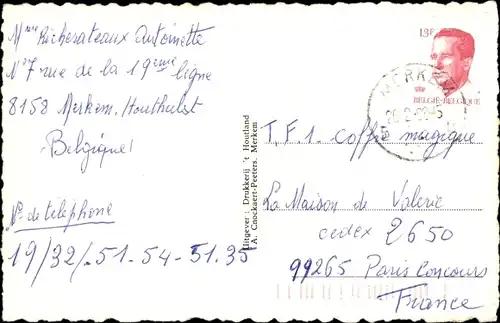 Mme Richerateaux Antoinette
No 7 rue de la 19ème ligne
8158 Merkem, Houthulst
Belgique!
No de telephone
19/32/.51-54-51.35
Uitgever: Drukkerij 't Houtland
A. Cnockaert-Peeters, Merkem
13F
BELGIË-BELGIQUE
MERKEM
T.F.1 coffre magique
La Maison de Valerie
cedex 2650
99265 Paris Concours
France